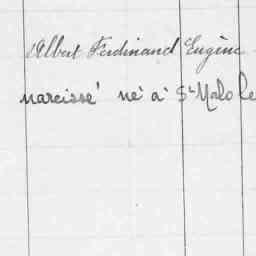 Albert Ferdinand Eugène
narcisse né à St Malo le